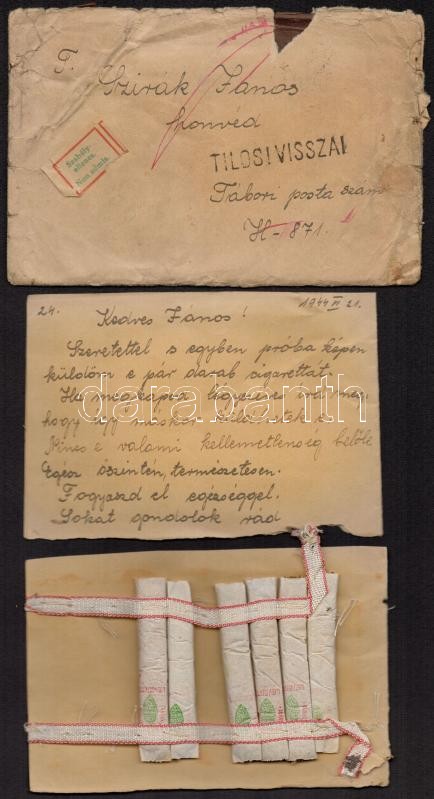 T.
Szirák János
honvéd
TILOS! VISSZA!
Szabály-
ellenes.
Non admis.
Tábori posta szám
H-871.
24. 1944 VI 21.
Kedves János!
Szeretettel s egyben próba képen
küldöm e pár darab cigarettát.
Ha megkapod légyszíves írd meg,
hogy így máskor küldhetek
Nincs e valami kellemetlenség belőle
Egész őszintén, természetesen.
Fogyaszd el egészséggel.
Sokat gondolok rád
darabanth